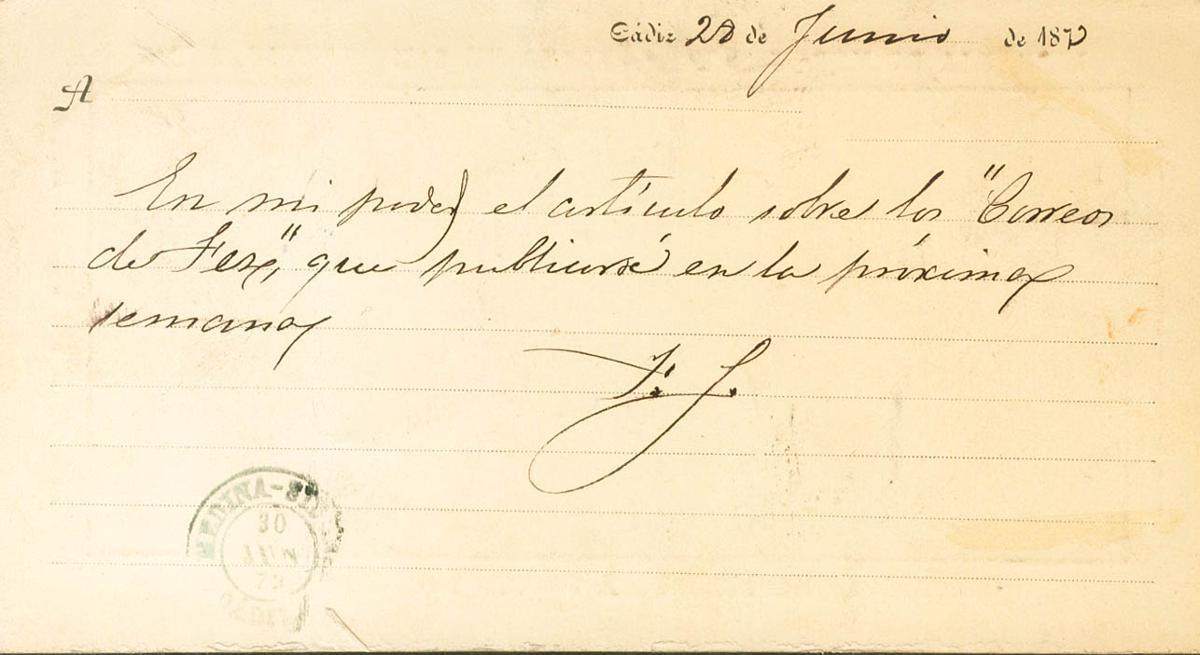 Cádiz 28 de Junio de 187
A
En mi poder el artículo sobre los "Correos
de Fez", que publicaré en la próxima
semana
F. J.
MEDINA-SI
30
JUN
73
CADIZ